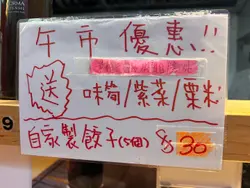 午市優惠!!
送
味筒/紫菜/粟米
自家製餃子(5個) $30
9